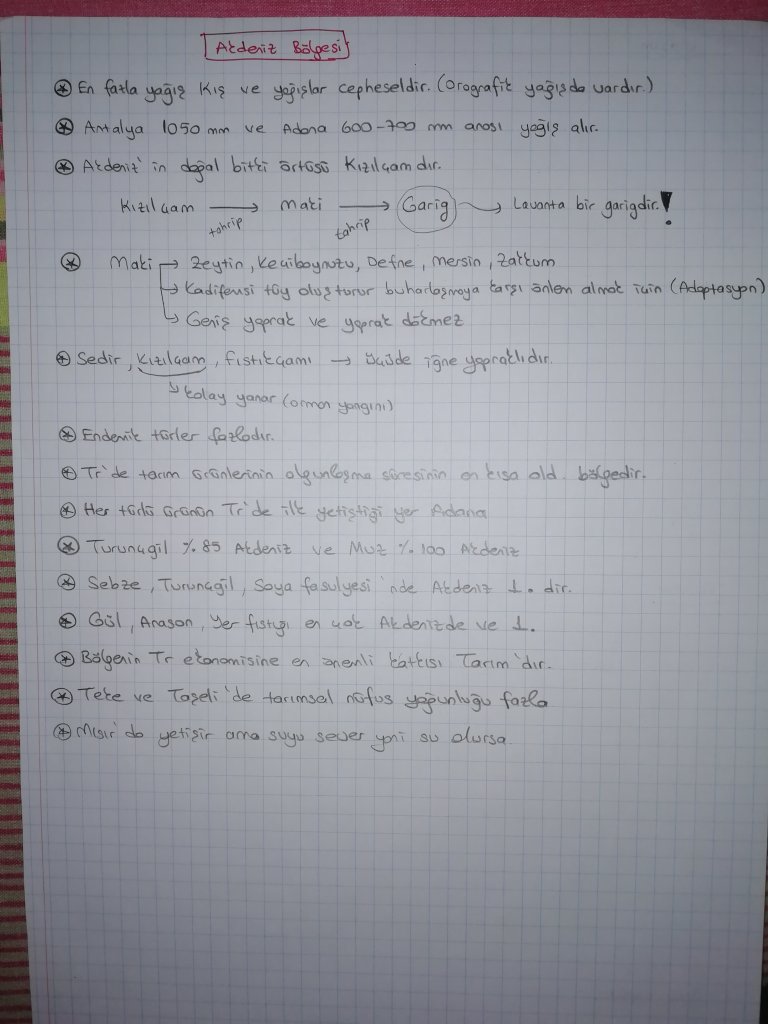 Akdeniz Bölgesi
En fazla yağış Kış ve yağışlar cepheseldir. (Orografik yağışda vardır.)
Antalya 1050 mm ve Adana 600-700 mm arası yağış alır.
Akdeniz'in doğal bitki örtüsü Kızılçamdır.
Kızılçam → maki → Garig → Lavanta bir garigdir.!
tahrip tahrip
Maki → Zeytin, Keçiboynuzu, Defne, Mersin, Zakkum
→ Kadifemsi tüy oluşturur buharlaşmaya karşı önlem almak için (Adaptasyon)
→ Geniş yaprak ve yaprak dökmez
Sedir, Kızılçam, fıstıkçamı → üçüde iğne yapraklıdır.
kolay yanar (orman yangını)
Endemik türler fazladır.
Tr'de tarım ürünlerinin olgunlaşma süresinin en kısa old. bölgedir.
Her türlü ürünün Tr'de ilk yetiştiği yer Adana
Turunçgil %85 Akdeniz ve Muz %100 Akdeniz
Sebze, Turunçgil, Soya fasulyesi'nde Akdeniz 1. dir.
Gül, Anason, Yer fıstığı en çok Akdenizde ve 1.
Bölgenin Tr ekonomisine en önemli katkısı Tarım'dır.
Teke ve Taşeli'de tarımsal nüfus yoğunluğu fazla
Mısır'da yetişir ama suyu sever yani su olursa